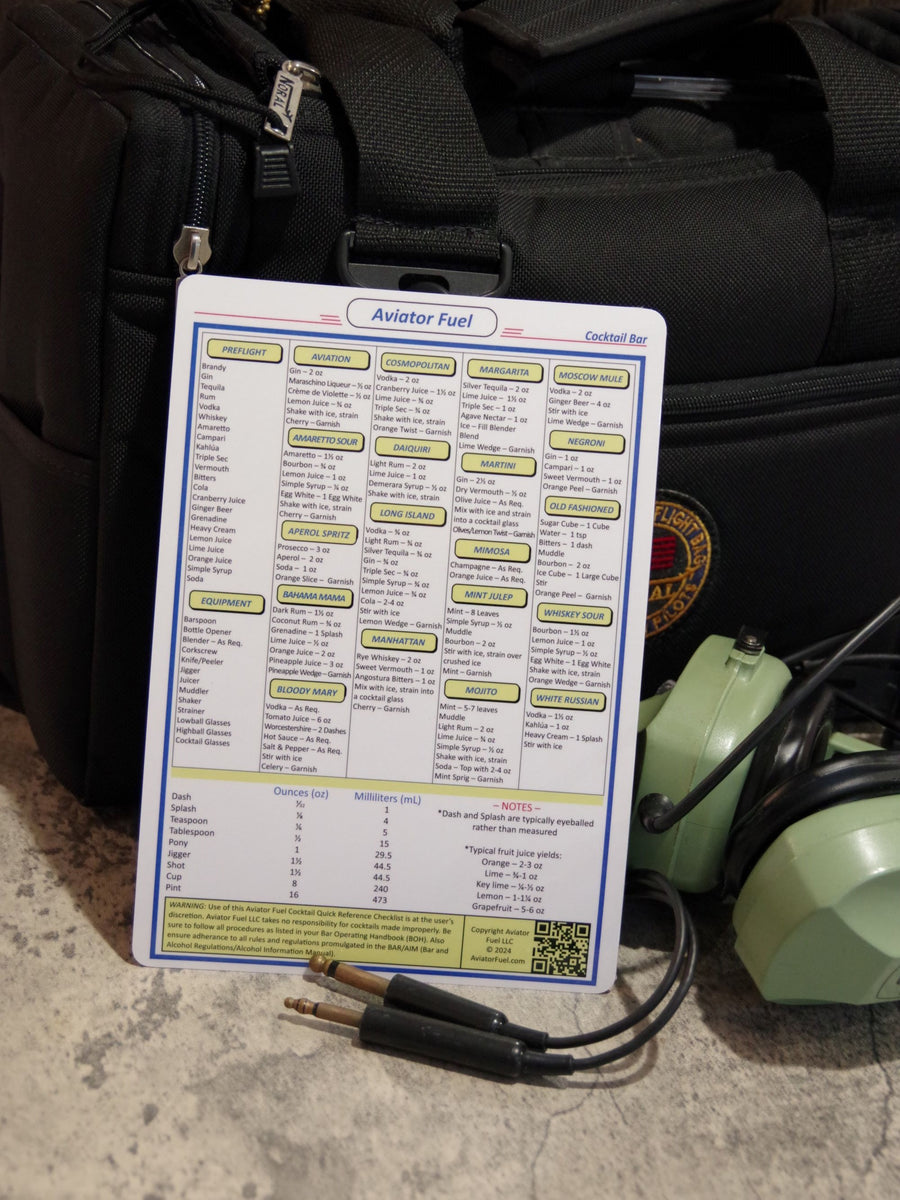 NORAL
Aviator Fuel
Cocktail Bar
PREFLIGHT
Brandy
Gin
Tequila
Rum
Vodka
Whiskey
Amaretto
Campari
Kahlúa
Triple Sec
Vermouth
Bitters
Cola
Cranberry Juice
Ginger Beer
Grenadine
Heavy Cream
Lemon Juice
Lime Juice
Orange Juice
Simple Syrup
Soda
EQUIPMENT
Barspoon
Bottle Opener
Blender – As Req.
Corkscrew
Knife/Peeler
Jigger
Juicer
Muddler
Shaker
Strainer
Lowball Glasses
Highball Glasses
Cocktail Glasses
AVIATION
Gin – 2 oz
Maraschino Liqueur – ½ oz
Crème de Violette – ½ oz
Lemon Juice – ¾ oz
Shake with ice, strain
Cherry – Garnish
AMARETTO SOUR
Amaretto – 1½ oz
Bourbon – ¾ oz
Lemon Juice – 1 oz
Simple Syrup – ¼ oz
Egg White – 1 Egg White
Shake with ice, strain
Cherry – Garnish
APEROL SPRITZ
Prosecco – 3 oz
Aperol – 2 oz
Soda – 1 oz
Orange Slice – Garnish
BAHAMA MAMA
Dark Rum – 1½ oz
Coconut Rum – ¾ oz
Grenadine – 1 Splash
Lime Juice – ½ oz
Orange Juice – 2 oz
Pineapple Juice – 3 oz
Pineapple Wedge – Garnish
BLOODY MARY
Vodka – As Req.
Tomato Juice – 6 oz
Worcestershire – 2 Dashes
Hot Sauce – As Req.
Salt & Pepper – As Req.
Stir with ice
Celery – Garnish
COSMOPOLITAN
Vodka – 2 oz
Cranberry Juice – 1½ oz
Lime Juice – ¾ oz
Triple Sec – ¾ oz
Shake with ice, strain
Orange Twist – Garnish
DAIQUIRI
Light Rum – 2 oz
Lime Juice – 1 oz
Demerara Syrup – ½ oz
Shake with ice, strain
LONG ISLAND
Vodka – ¾ oz
Light Rum – ¾ oz
Silver Tequila – ¾ oz
Gin – ¾ oz
Triple Sec – ¾ oz
Simple Syrup – ¾ oz
Lemon Juice – ¾ oz
Cola – 2-4 oz
Stir with ice
Lemon Wedge – Garnish
MANHATTAN
Rye Whiskey – 2 oz
Sweet Vermouth – 1 oz
Angostura Bitters – 1 oz
Mix with ice, strain into
a cocktail glass
Cherry – Garnish
MARGARITA
Silver Tequila – 2 oz
Lime Juice – 1½ oz
Triple Sec – 1 oz
Agave Nectar – 1 oz
Ice – Fill Blender
Blend
Lime Wedge – Garnish
MARTINI
Gin – 2½ oz
Dry Vermouth – ½ oz
Olive Juice – As Req.
Mix with ice and strain
into a cocktail glass
Olives/Lemon Twist – Garnish
MIMOSA
Champagne – As Req.
Orange Juice – As Req.
MINT JULEP
Mint – 8 Leaves
Simple Syrup – ½ oz
Muddle
Bourbon – 2 oz
Stir with ice, strain over
crushed ice
Mint – Garnish
MOJITO
Mint – 5-7 leaves
Muddle
Light Rum – 2 oz
Lime Juice – ¾ oz
Simple Syrup – ½ oz
Shake with ice, strain
Soda – Top with 2-4 oz
Mint Sprig – Garnish
MOSCOW MULE
Vodka – 2 oz
Ginger Beer – 4 oz
Stir with ice
Lime Wedge – Garnish
NEGRONI
Gin – 1 oz
Campari – 1 oz
Sweet Vermouth – 1 oz
Orange Peel – Garnish
OLD FASHIONED
Sugar Cube – 1 Cube
Water – 1 tsp
Bitters – 1 dash
Muddle
Bourbon – 2 oz
Ice Cube – 1 Large Cube
Stir
Orange Peel – Garnish
WHISKEY SOUR
Bourbon – 1½ oz
Lemon Juice – 1 oz
Simple Syrup – ½ oz
Egg White – 1 Egg White
Shake with ice, strain
Orange Wedge – Garnish
WHITE RUSSIAN
Vodka – 1½ oz
Kahlúa – 1 oz
Heavy Cream – 1 Splash
Stir with ice
Ounces (oz) Milliliters (mL)
Dash 1
Splash 4
Teaspoon 5
Tablespoon ½ 15
Pony 1 29.5
Jigger 1½ 44.5
Shot 1½ 44.5
Cup 8 240
Pint 16 473
– NOTES –
*Dash and Splash are typically eyeballed
rather than measured
*Typical fruit juice yields:
Orange – 2-3 oz
Lime – ¾-1 oz
Key lime – ¼-½ oz
Lemon – 1-1¼ oz
Grapefruit – 5-6 oz
WARNING: Use of this Aviator Fuel Cocktail Quick Reference Checklist is at the user's
discretion. Aviator Fuel LLC takes no responsibility for cocktails made improperly. Be
sure to follow all procedures as listed in your Bar Operating Handbook (BOH). Also
ensure adherance to all rules and regulations promulgated in the BAR/AIM (Bar and
Alcohol Regulations/Alcohol Information Manual).
Copyright Aviator
Fuel LLC
© 2024
AviatorFuel.com
FLIGHT BAG
RAL
PILOTS